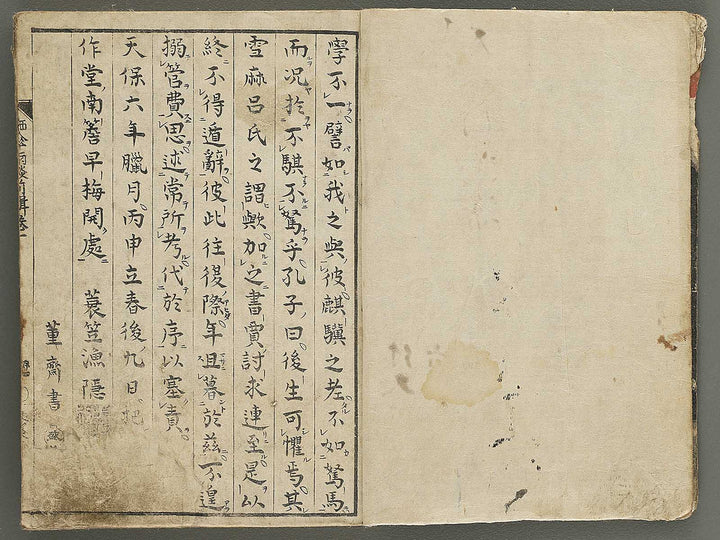 學不一譬如我之與彼麒驥之老不如駑馬
而況於不騏不駑乎孔子曰後生可懼焉其
雪麻呂氏之謂歟加之書賈討求連至是以
終不得遁辭彼此往復際年且暮於茲不遑
搦管費思述常所考代於序以塞責
天保六年臘月丙申立春後九日把
作堂南簷早梅開處　蓑笠漁隱
董齋書